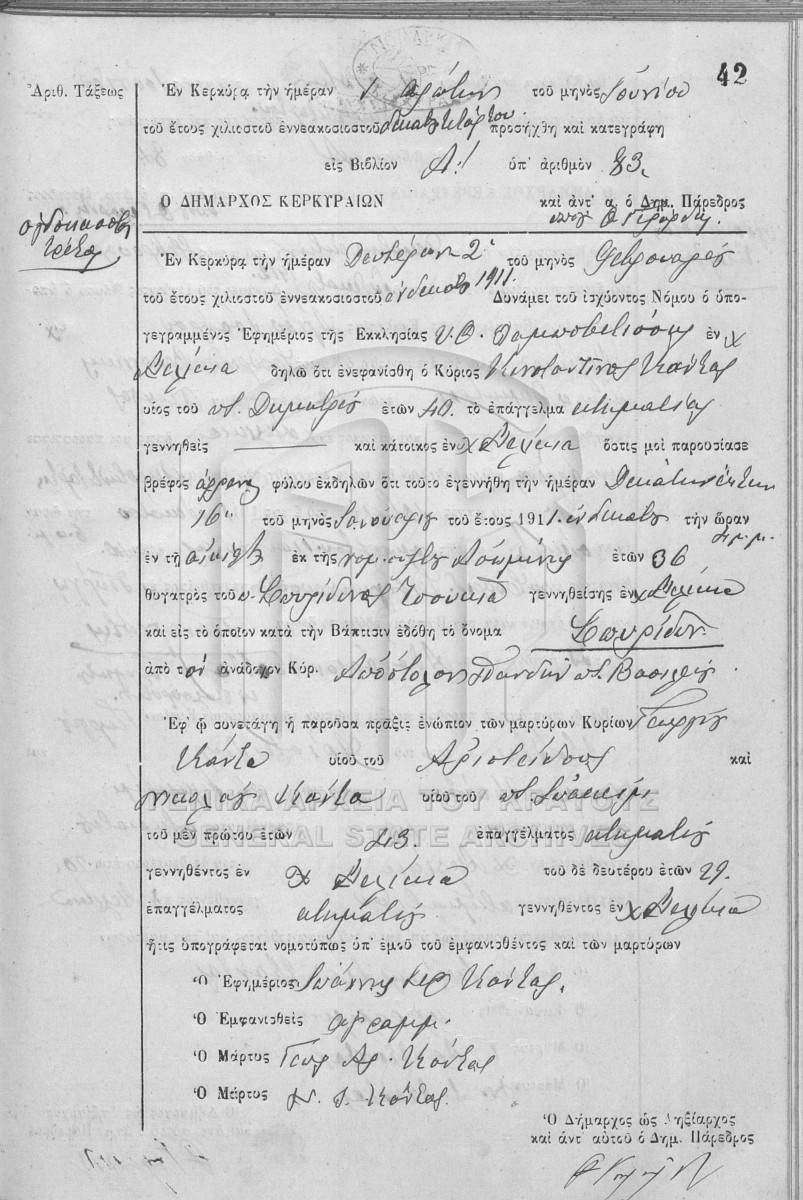 42
Ἀριθ. Τάξεως
Ἐν Κερκύρᾳ τὴν ἡμέραν 1 πρώτην τοῦ μηνὸς Ἰουνίου
τοῦ ἔτους χιλιοστοῦ ἐννεακοσιοστοῦ δεκάτου τετάρτου προσήχθη καὶ κατεγράφη
εἰς Βιβλίον Α! ὑπ' ἀριθμὸν 83.
Ο ΔΗΜΑΡΧΟΣ ΚΕΡΚΥΡΑΙΩΝ καὶ ἀντ' α. ὁ Δημ. Πάρεδρος
ὀγδοηκοστὴ
τρίτη
Ἐν Κερκύρᾳ τὴν ἡμέραν Δευτέραν 2 τοῦ μηνὸς Φεβρουαρίου
τοῦ ἔτους χιλιοστοῦ ἐννεακοσιοστοῦ ἑνδεκάτου 1911. Δυνάμει τοῦ ἰσχύοντος Νόμου ὁ ὑπο-
γεγραμμένος Ἐφημέριος τῆς Ἐκκλησίας Υ. Θ. ἐν χ
δηλῶ ὅτι ἐνεφανίσθη ὁ Κύριος Κωνσταντῖνος Κάντας
υἱὸς τοῦ Δημητρίου ἐτῶν 40. τὸ ἐπάγγελμα κτηματίας
γεννηθεὶς — καὶ κάτοικος ἐν χ ὅστις μοὶ παρουσίασε
βρέφος ἄρρεν φύλου ἐκδηλῶν ὅτι τοῦτο ἐγεννήθη τὴν ἡμέραν Δεκάτην ἕκτην
16 τοῦ μηνὸς Ἰανουαρίου τοῦ ἔτους 1911 ἑνδεκάτου τὴν ὥραν
ἐν τῇ οἰκίᾳ ἐκ τῆς νομ. συζύγου ἐτῶν 36
θυγατρὸς τοῦ Σπυρίδωνος γεννηθείσης ἐν χ
καὶ εἰς τὸ ὁποῖον κατὰ τὴν Βάπτισιν ἐδόθη τὸ ὄνομα Σπυρίδων
ἀπὸ τὸν ἀνάδοχον Κύρ. Ἀπόστολον Βασιλείου
Ἐφ' ᾧ συνετάγη ἡ παροῦσα πρᾶξις ἐνώπιον τῶν μαρτύρων Κυρίων Γεωργίου
Κάντα υἱοῦ τοῦ Ἀριστείδους καὶ
Νικολάου Κάντα υἱοῦ τοῦ
ΓΕΝΙΚΑ ΑΡΧΕΙΑ ΤΟΥ ΚΡΑΤΟΥΣ
GENERAL STATE ARCHIVES
τοῦ μὲν πρώτου ἐτῶν 43. ἐπαγγέλματος κτηματίου
γεννηθέντος ἐν χ τοῦ δὲ δευτέρου ἐτῶν 29.
ἐπαγγέλματος κτηματίου γεννηθέντος ἐν χ
ἥτις ὑπογράφεται νομοτύπως ὑπ' ἐμοῦ τοῦ ἐμφανισθέντος καὶ τῶν μαρτύρων
Ὁ Ἐφημέριος Ἰωάννης Κάντας.
Ὁ Ἐμφανισθεὶς ἀγράμμ.
Ὁ Μάρτυς Γεώρ Αρ. Κάντας
Ὁ Μάρτυς Ν. Ι. Κάντας.
Ὁ Δήμαρχος ὡς Ληξίαρχος
καὶ ἀντ' αὐτοῦ ὁ Δημ. Πάρεδρος